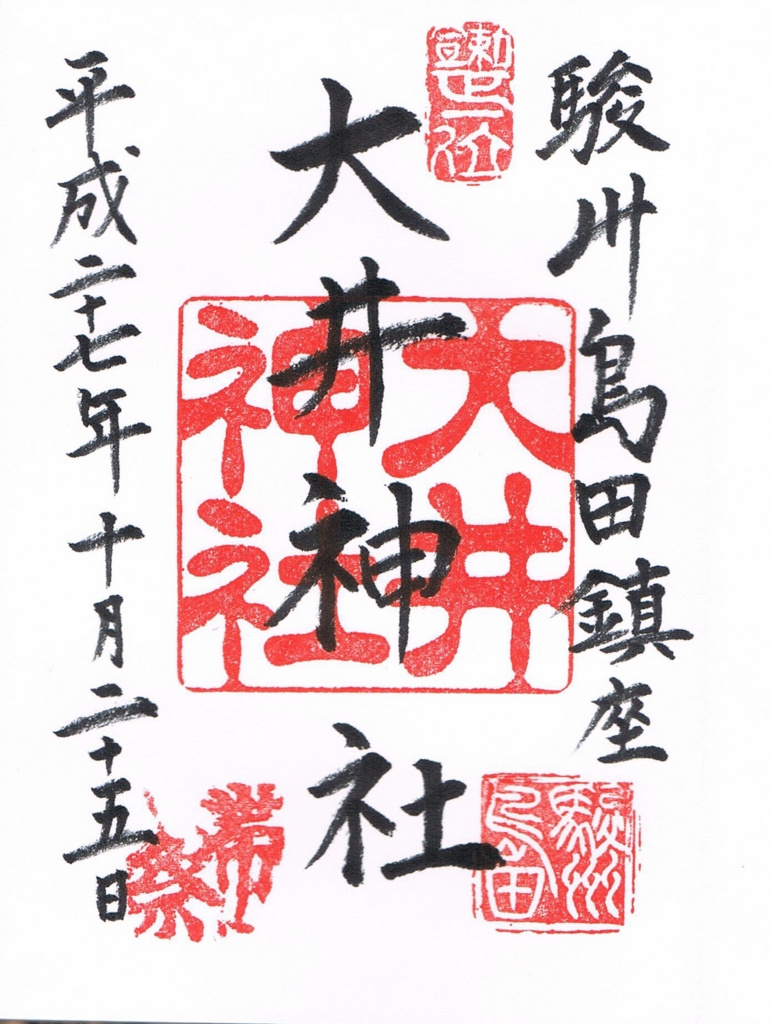 駿州島田鎮座
勅宣正一位
大井神社
大井神社
駿州島田
平成二十七年十月二十五日
帯祭